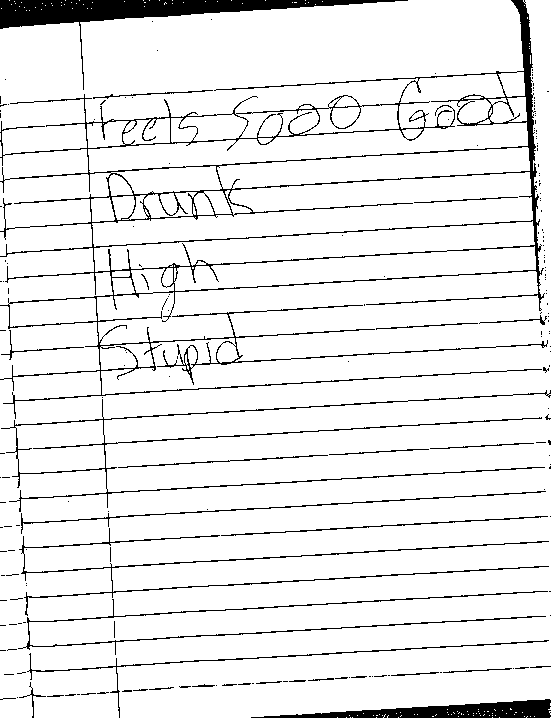 Feels Sooo Good
Drunk
High
Stupid